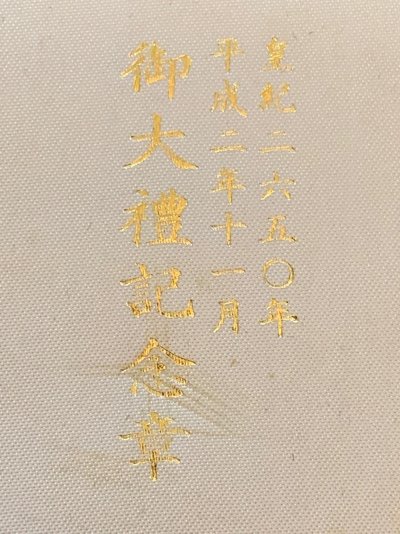 皇紀二六五〇年
平成二年十一月
御大禮記念章